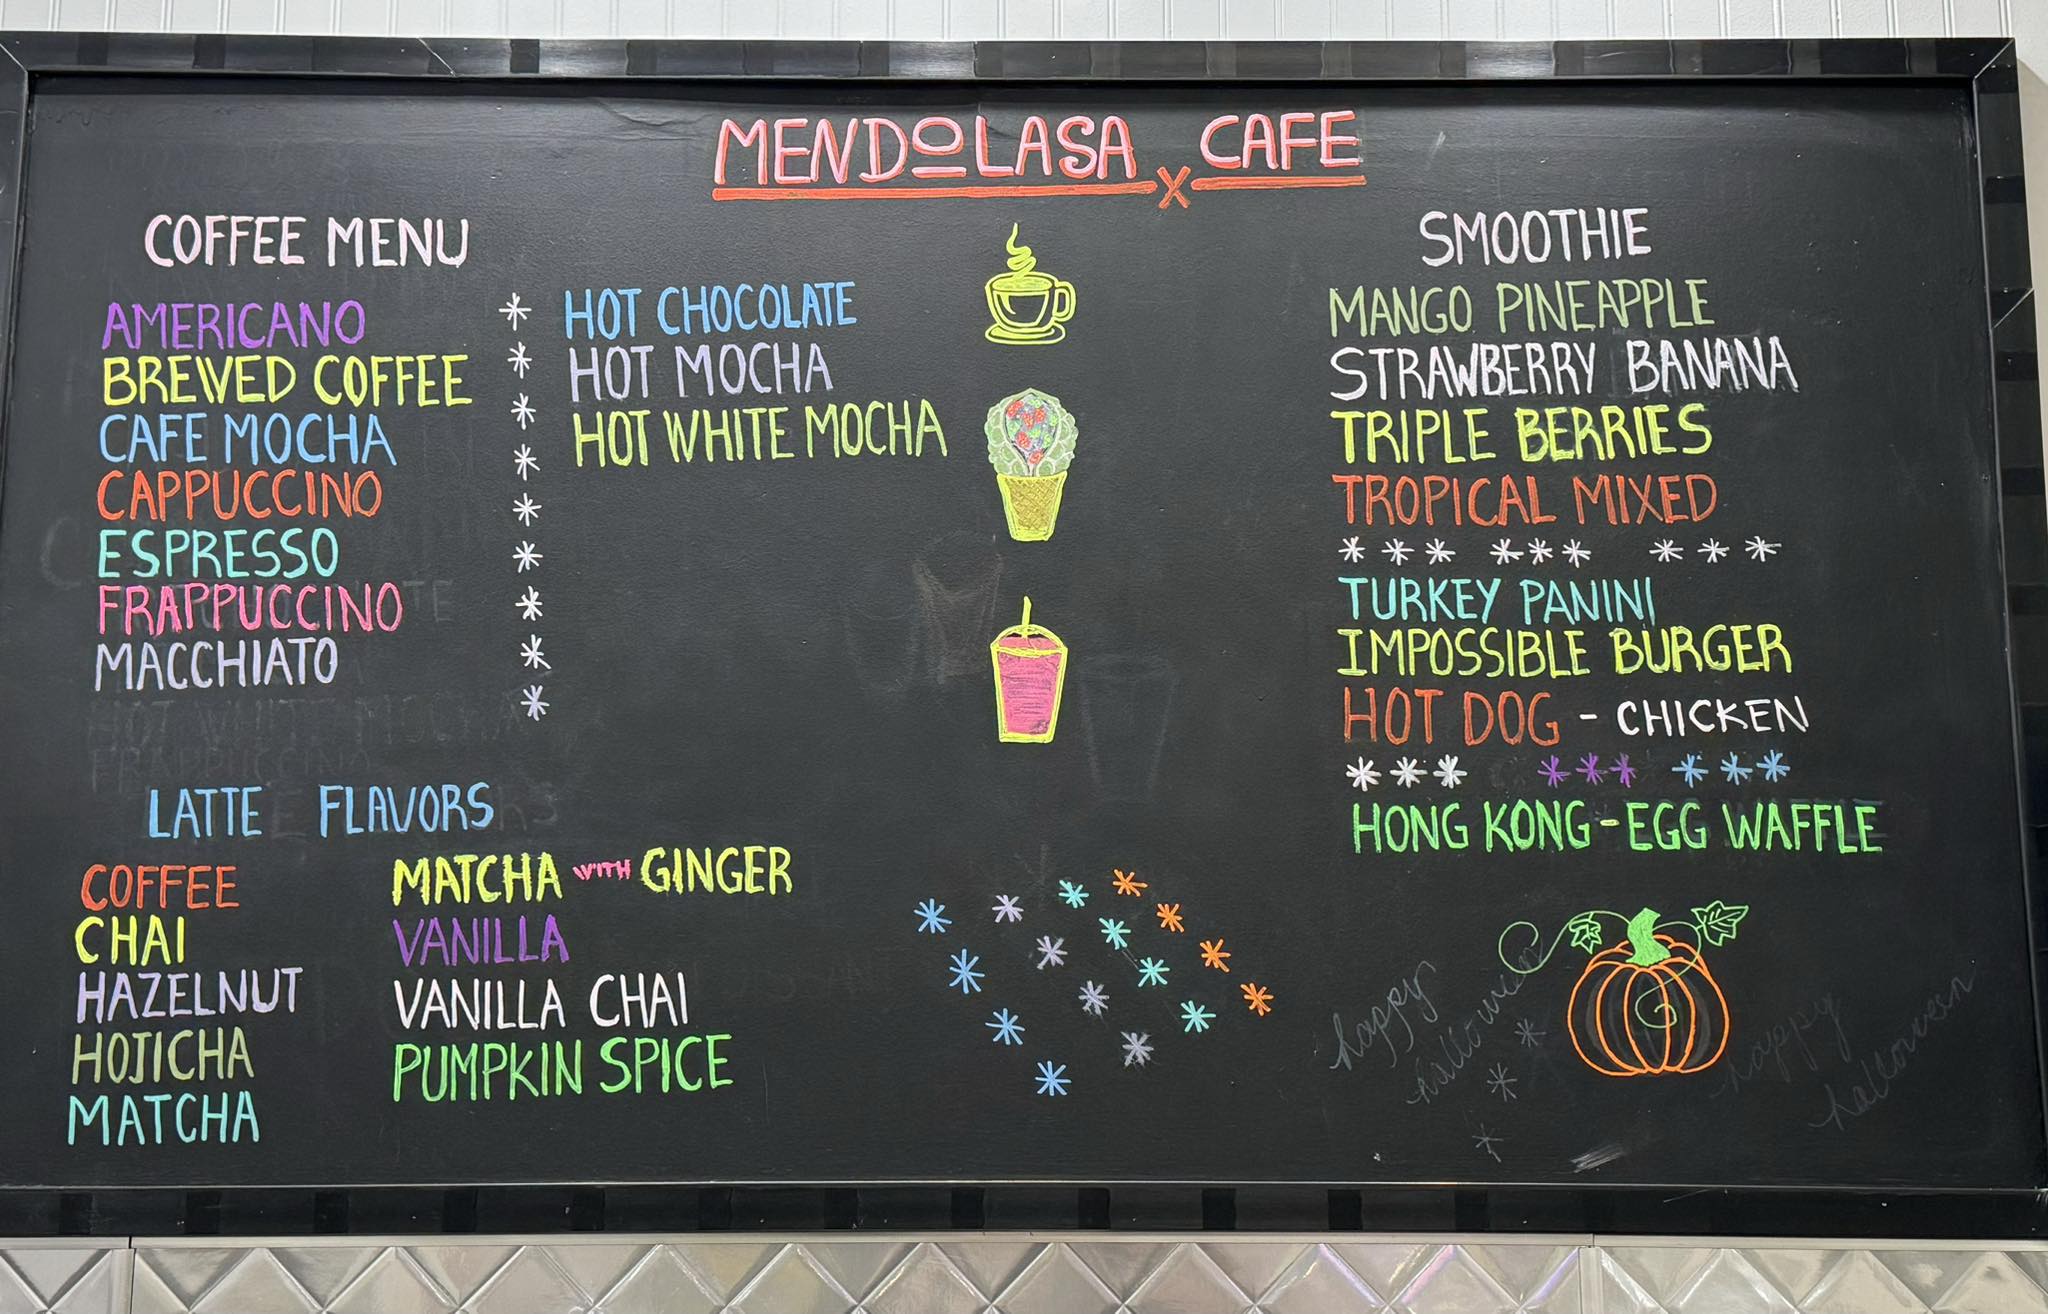 MENDOLASA x CAFE
COFFEE MENU
AMERICANO
BREWED COFFEE
CAFE MOCHA
CAPPUCCINO
ESPRESSO
FRAPPUCCINO
MACCHIATO
HOT CHOCOLATE
HOT MOCHA
HOT WHITE MOCHA
LATTE FLAVORS
COFFEE
CHAI
HAZELNUT
HOJICHA
MATCHA
MATCHA WITH GINGER
VANILLA
VANILLA CHAI
PUMPKIN SPICE
SMOOTHIE
MANGO PINEAPPLE
STRAWBERRY BANANA
TRIPLE BERRIES
TROPICAL MIXED
TURKEY PANINI
IMPOSSIBLE BURGER
HOT DOG - CHICKEN
HONG KONG - EGG WAFFLE
happy
halloween
happy
halloween